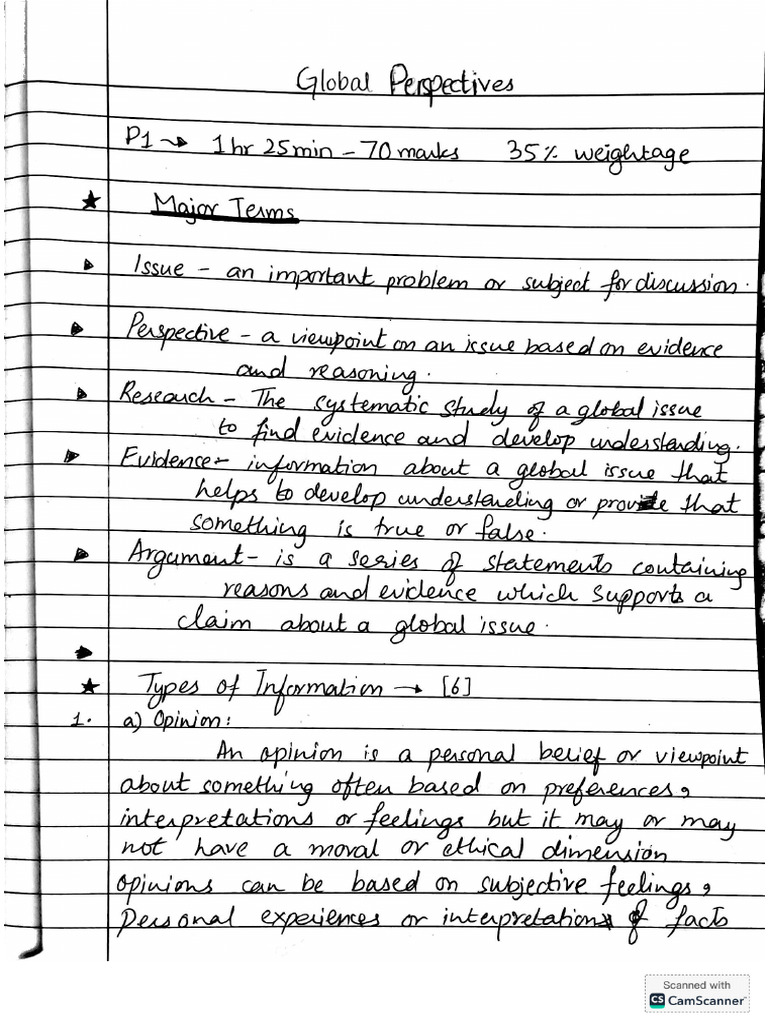 Global Perspectives
P1 → 1hr 25min - 70 marks 35% weightage
★ Major Terms
Issue - an important problem or subject for discussion.
Perspective - a viewpoint on an issue based on evidence
and reasoning.
Research - The systematic study of a global issue
to find evidence and develop understanding.
Evidence - information about a global issue that
helps to develop understanding or provide that
something is true or false.
Argument - is a series of statements containing
reasons and evidence which supports a
claim about a global issue.
★ Types of Information → [6]
1. a) Opinion:
An opinion is a personal belief or viewpoint
about something often based on preferences,
interpretations or feelings but it may or may
not have a moral or ethical dimension
opinions can be based on subjective feelings,
personal experiences or interpretations of facts
Scanned with
CS CamScanner